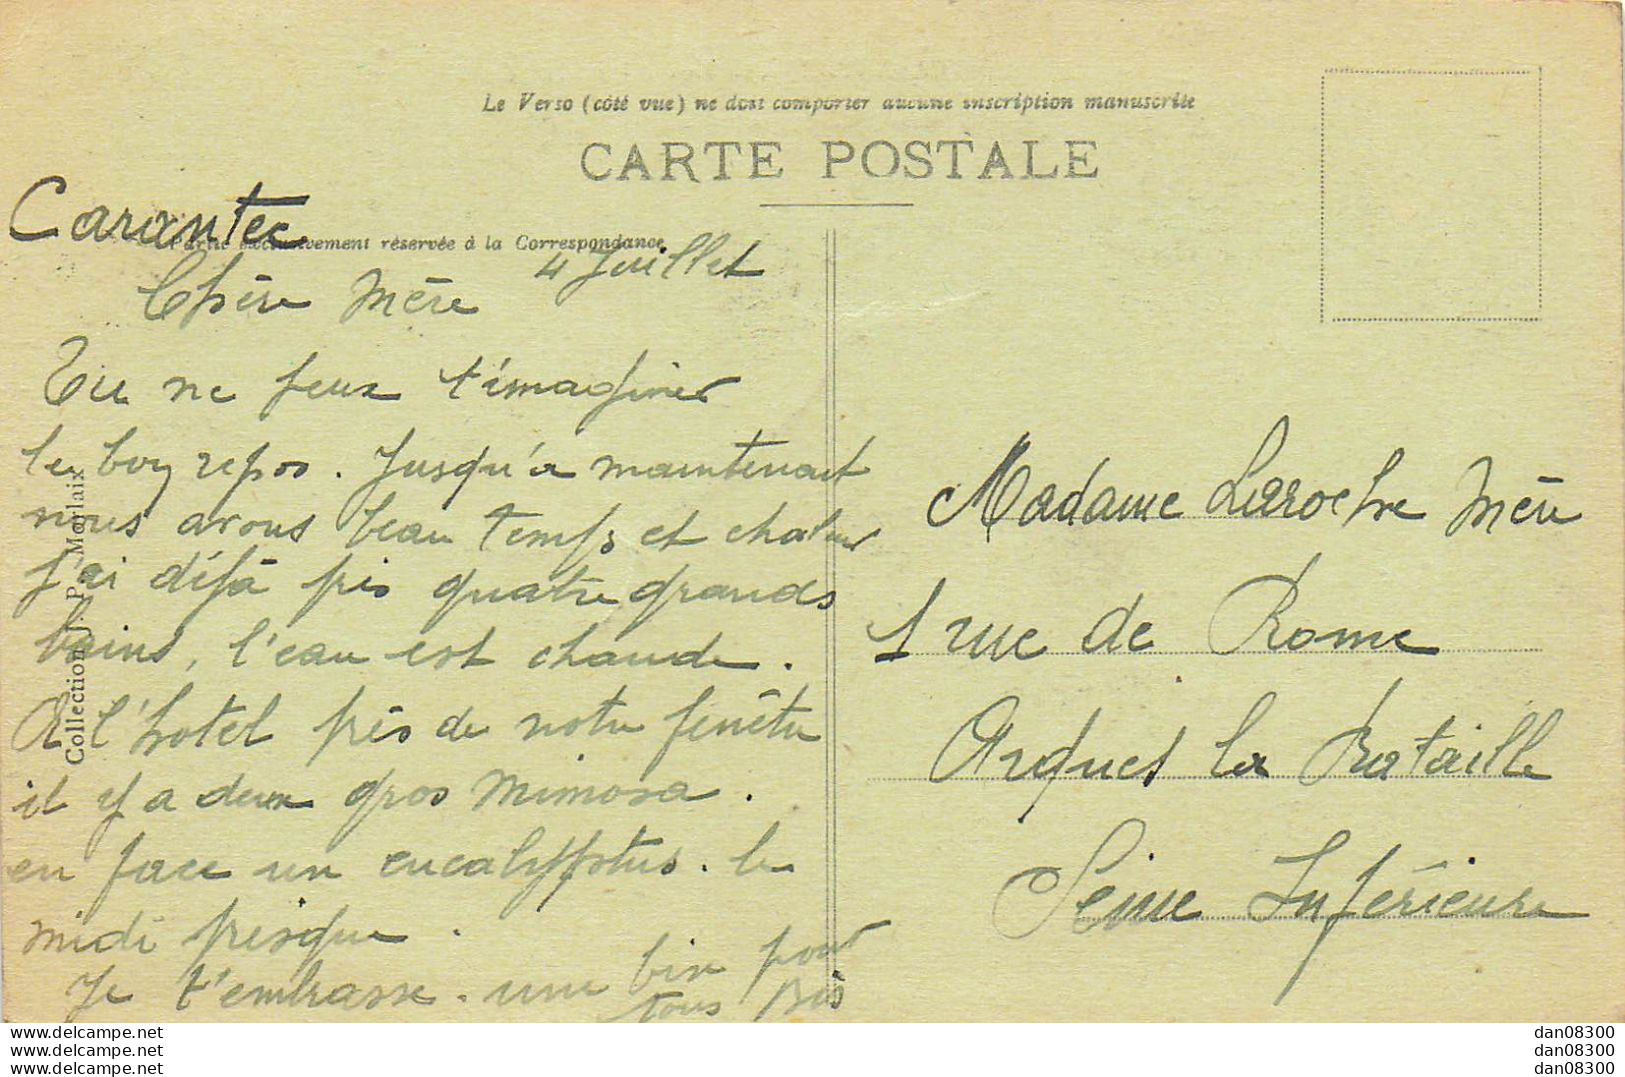 Le Verso (côté vue) ne doit comporter aucune inscription manuscrite
CARTE POSTALE
Carantec
Partie exclusivement réservée à la Correspondance
4 Juillet
Chère Mère
Tu ne peux t'imaginer
le bon repos. Jusqu'à maintenant
nous avons beau temps et chaleur
J'ai déjà pris quatre grands
bains, l'eau est chaude.
A l'hotel près de notre fenêtre
il y a deux gros mimosa.
en face un eucalyptus. le
midi presque.
Je t'embrasse. une bise pour
tous
Collection J. P. Morlaix
Madame Laroche Mère
1 rue de Rome
Arques la Bataille
Seine Inférieure
www.delcampe.net
www.delcampe.net
www.delcampe.net
dan08300
dan08300
dan08300